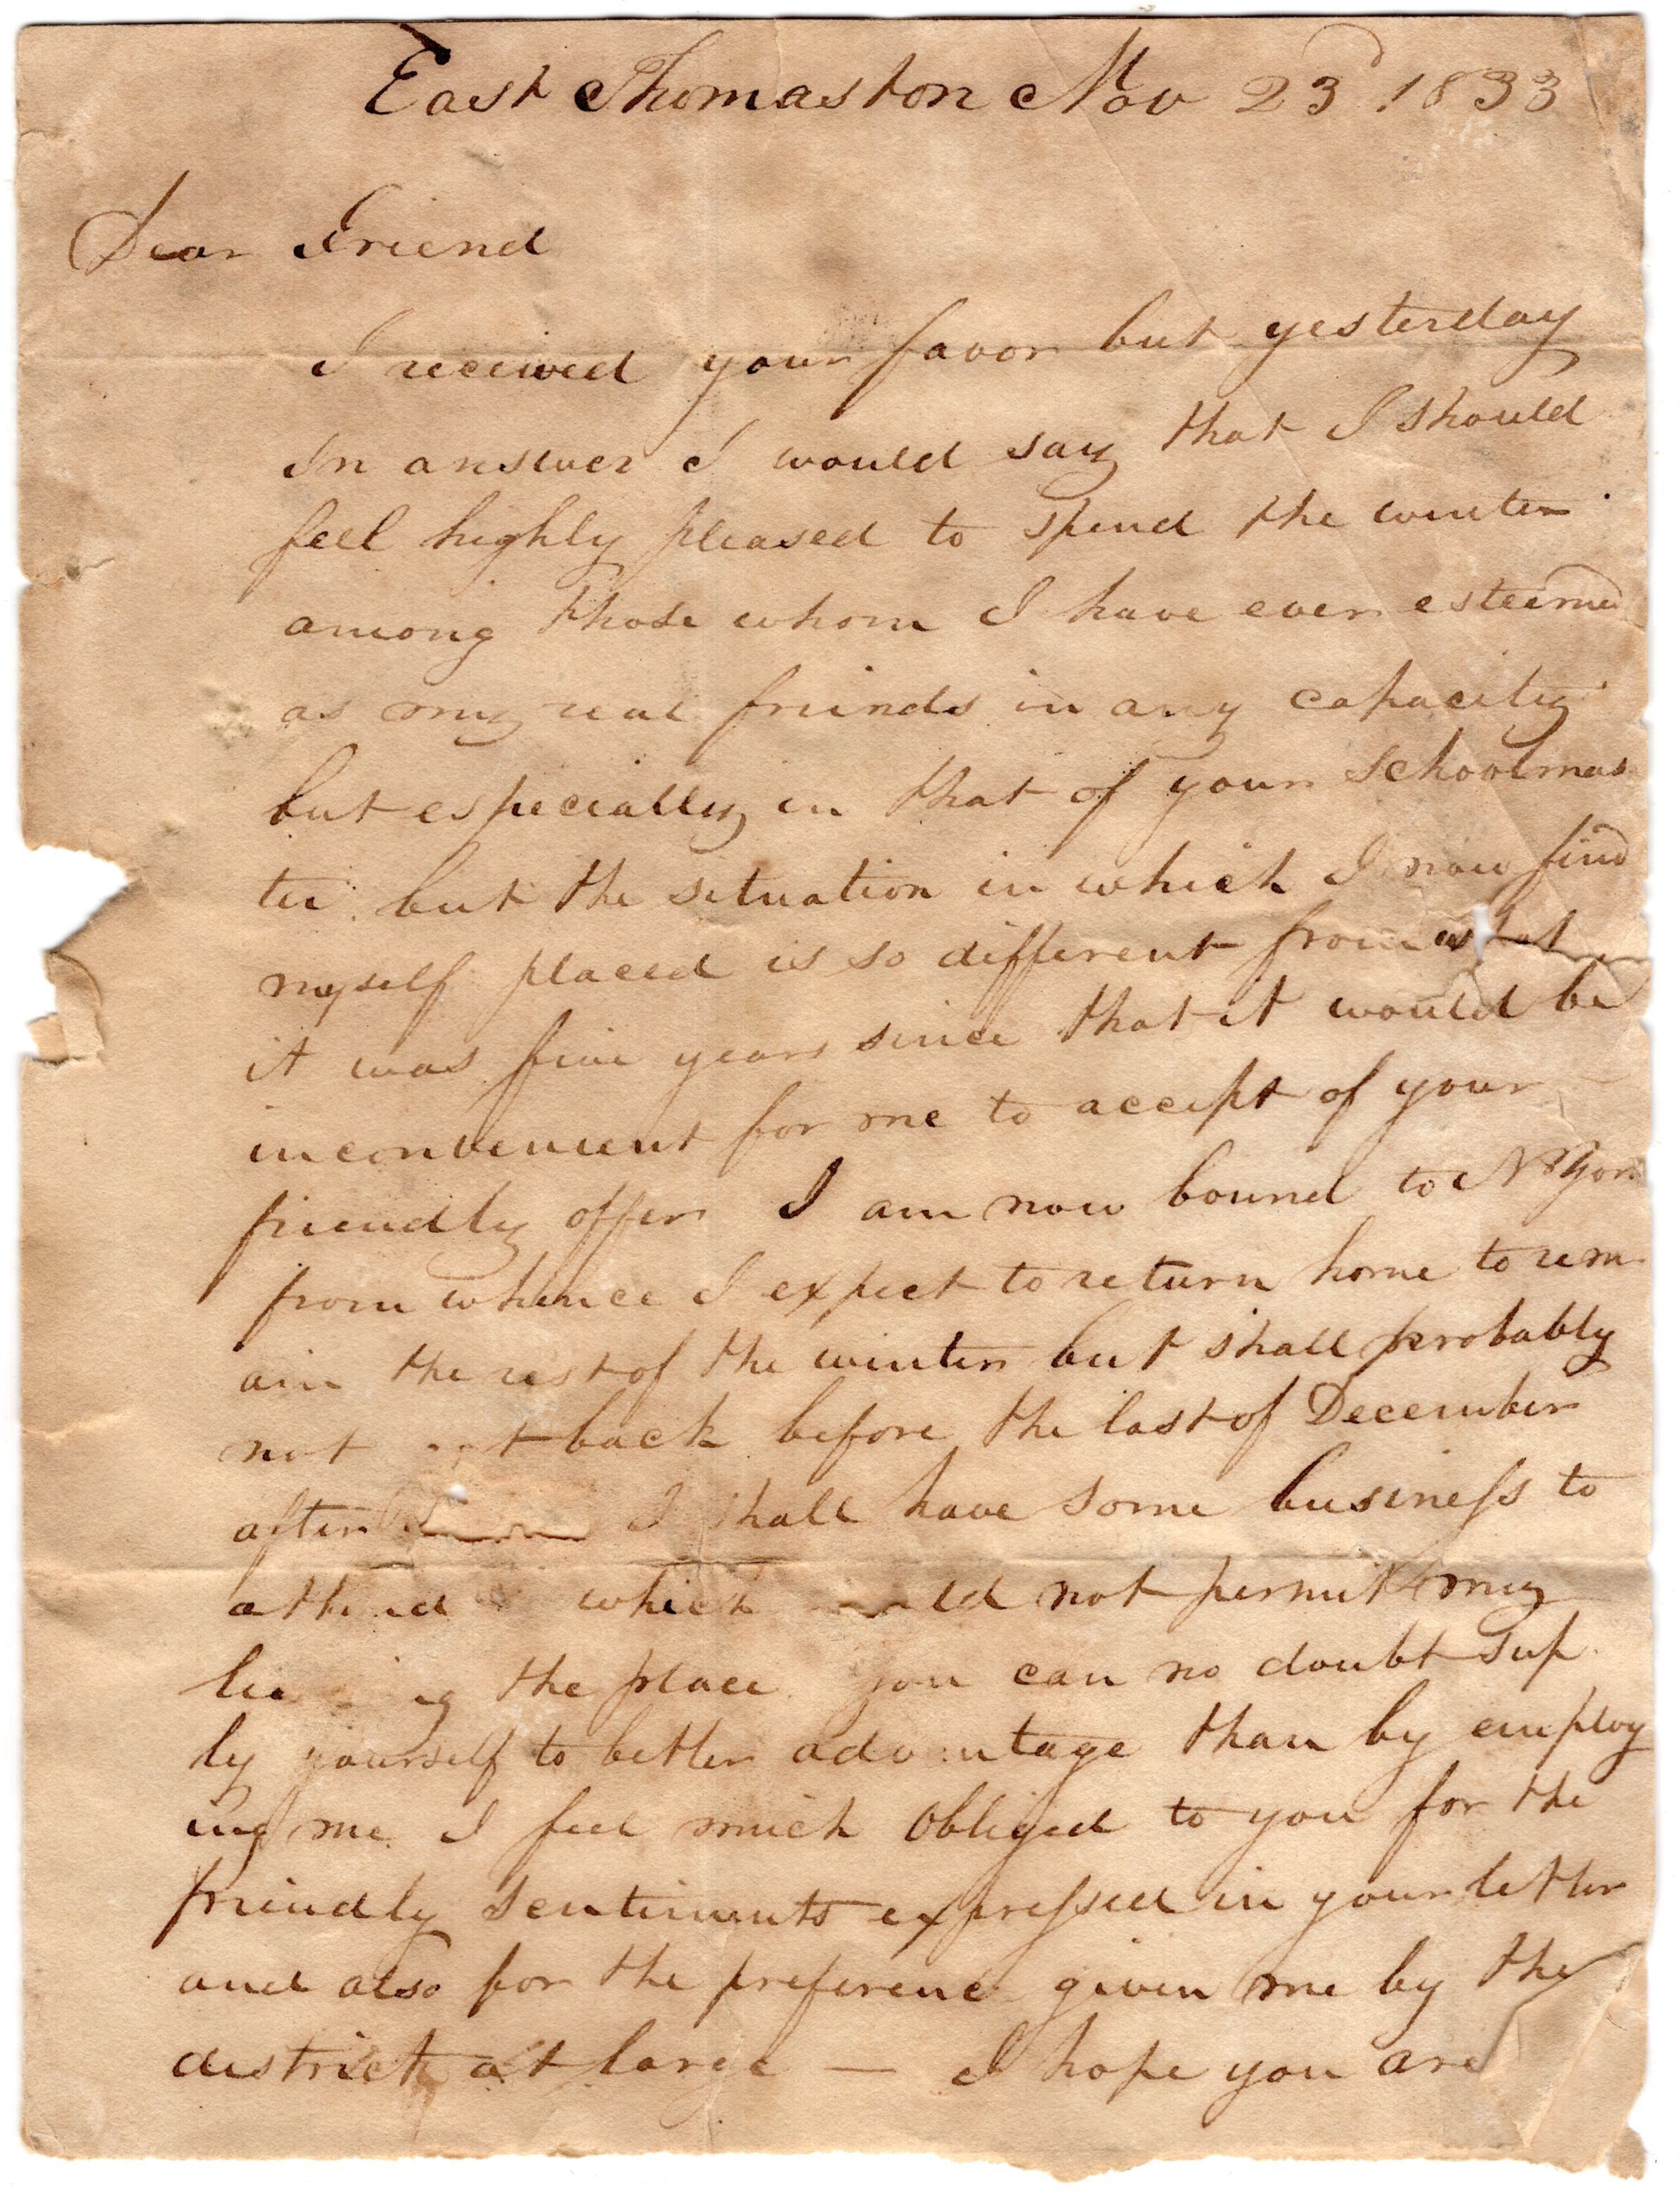 East Thomaston Nov 23d 1833
Dear Friend
I received your favor but yesterday
In answer I would say that I should
feel highly pleased to spend the winter
among those whom I have ever esteemed
as my real friends in any capacity
but especially in that of your schoolmas
ter but the situation in which I now find
myself placed is so different from what
it was five years since that it would be
inconvenient for me to accept of your
friendly offer I am now bound to N York
from whence I expect to return home to rem
ain the rest of the winter but shall probably
not back before the last of December
after I shall have some business to
attend which not permit my
the place you can no doubt sup
ly yourself to better advantage than by employ
ing me I feel much obliged to you for the
friendly sentiments expressed in your letter
and also for the preference given me by the
district at large — I hope you are